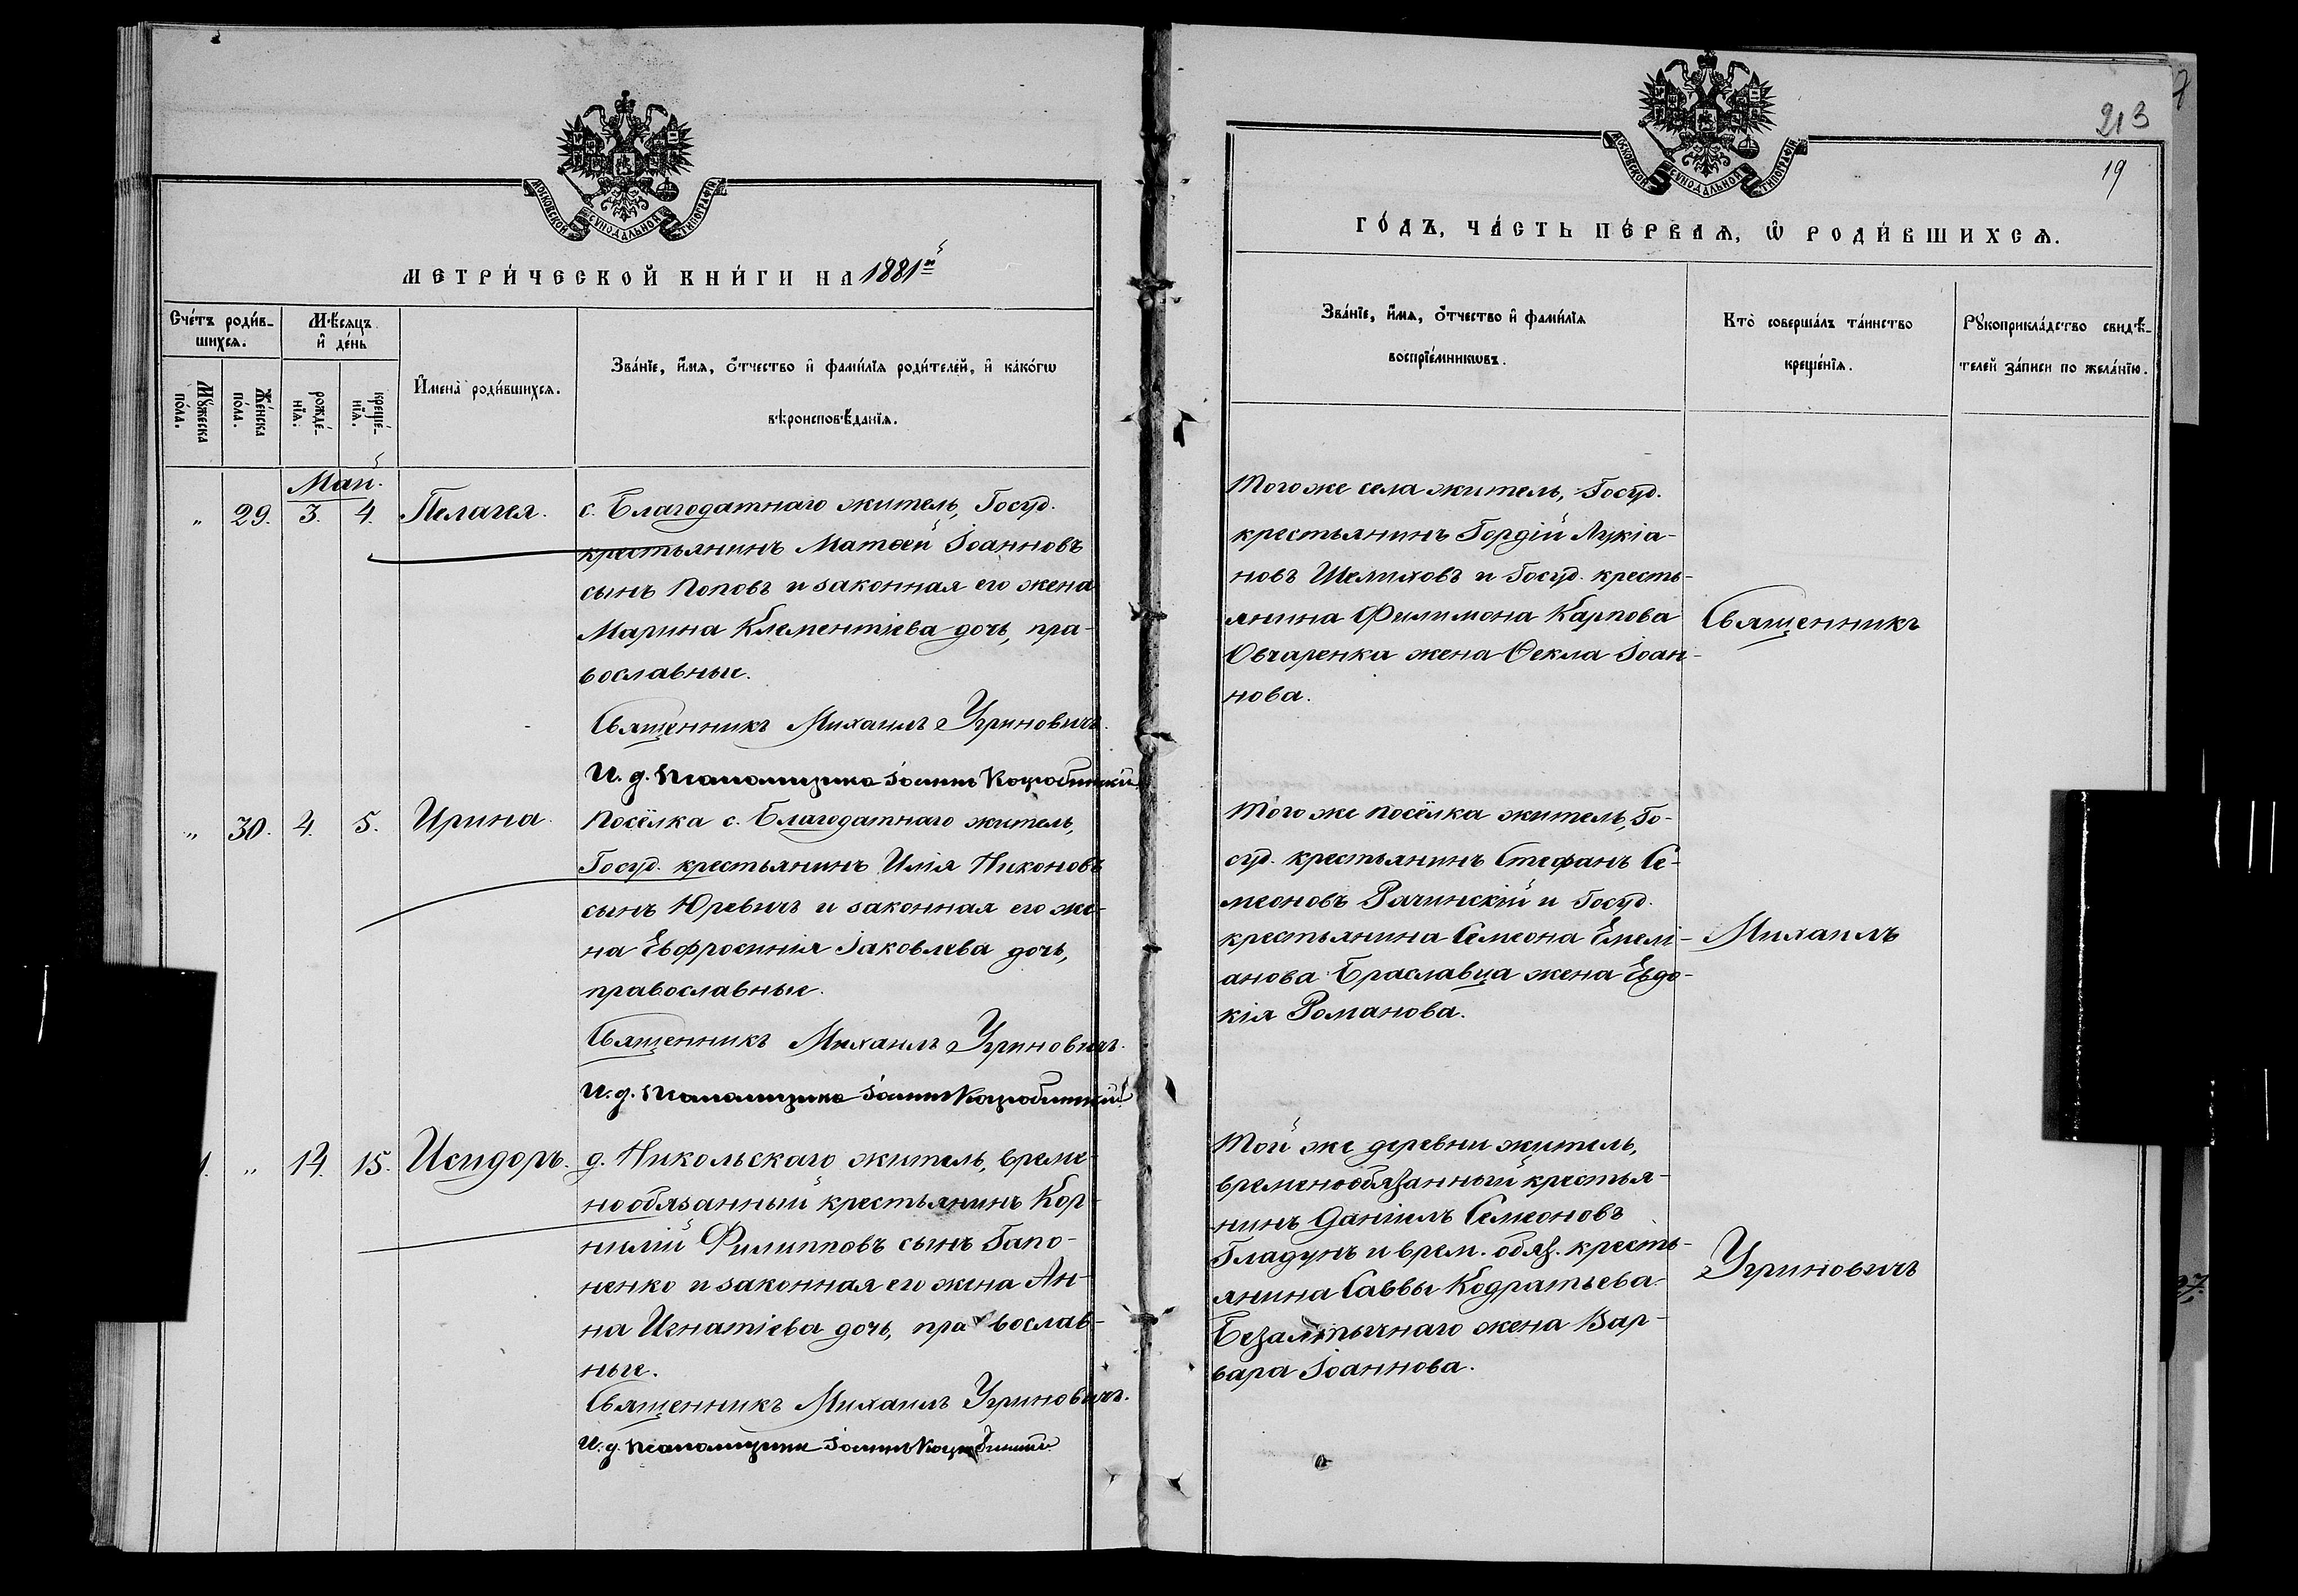 МОСКОВСКОЙ СѴНОДАЛЬНОЙ ТИПОГРАФІИ
МЕТРИ́ЧЕСКОЙ КНИ́ГИ НА 1881й
Сче́тъ роди́в-
шихсѧ.
Мужеска
по́ла.
Же́нска
по́ла.
Мѣ́сяцъ
и҆ де́нь
рожде́-
нїѧ.
креще́-
нїѧ.
И҆мена̀ роди́вшихсѧ.
Зва́нїе, и҆́мѧ, ѻ҆́тчество и҆ фами́лїѧ роди́телей, и҆ како́гѡ
вѣроисповѣ́данїѧ.
Май.
„ 29. 3. 4. Пелагея.
с. Благодатнаго житель, Госуд.
крестьянинъ Матѳей Іоанновъ
сынъ Поповъ и законная его жена
Марина Климентіева дочь, пра-
вославные.
Священникъ Михаилъ Угриновичъ.
И. д. псаломщика Іоаннъ Коцюбинскій
„ 30. 4. 5. Ирина.
Посёлка с. Благодатнаго житель,
Госуд. крестьянинъ Илія Никоновъ
сынъ Юревичъ и законная его же-
на Евфросинія Іаковлева дочь,
православные.
Священникъ Михаилъ Угриновичъ.
И. д. псаломщика Іоаннъ Коцюбинскій
„ 14. 15. Исидоръ.
д. Никольскаго житель, време-
нообязанный крестьянинъ Кор-
нилій Филипповъ сынъ Гапо-
ненко и законная его жена Ан-
на Игнатіева дочь, православ-
ные.
Священникъ Михаилъ Угриновичъ.
И. д. псаломщика Іоаннъ Коцюбинскій
213
19
МОСКОВСКОЙ СѴНОДАЛЬНОЙ ТИПОГРАФІИ
ГО́ДЪ, ЧА́СТЬ ПЕ́РВАѦ, Ѡ҆ РОДИ́ВШИХСѦ.
Зва́нїе, и҆́мѧ, ѻ҆́тчество и҆ фами́лїѧ
воспрїе́мникѡвъ.
Кто̀ соверша́лъ та́инство
креще́нїѧ.
Рукоприкла́дство свидѣ́-
телей за́писи по жела́нїю.
Того же села житель, Госуд.
крестьянинъ Гордій Лукіа-
новъ Шелиховъ и Госуд. кресть-
янина Филимона Карпова
Овчаренка жена Ѳекла Іоан-
нова.
Священникъ
Того же посёлка житель, Го-
суд. крестьянинъ Стефанъ Се-
меоновъ Рачинскій и Госуд.
крестьянина Семеона Емелі-
анова Браславца жена Евдо-
кія Романова.
Михаилъ
Той же деревни житель,
временнообязанный крестья-
нинъ Даніилъ Семеоновъ
Гладунъ и врем. обяз. кресть-
янина Саввы Кодратьева
жена Вар-
вара Іоаннова.
Угриновичъ